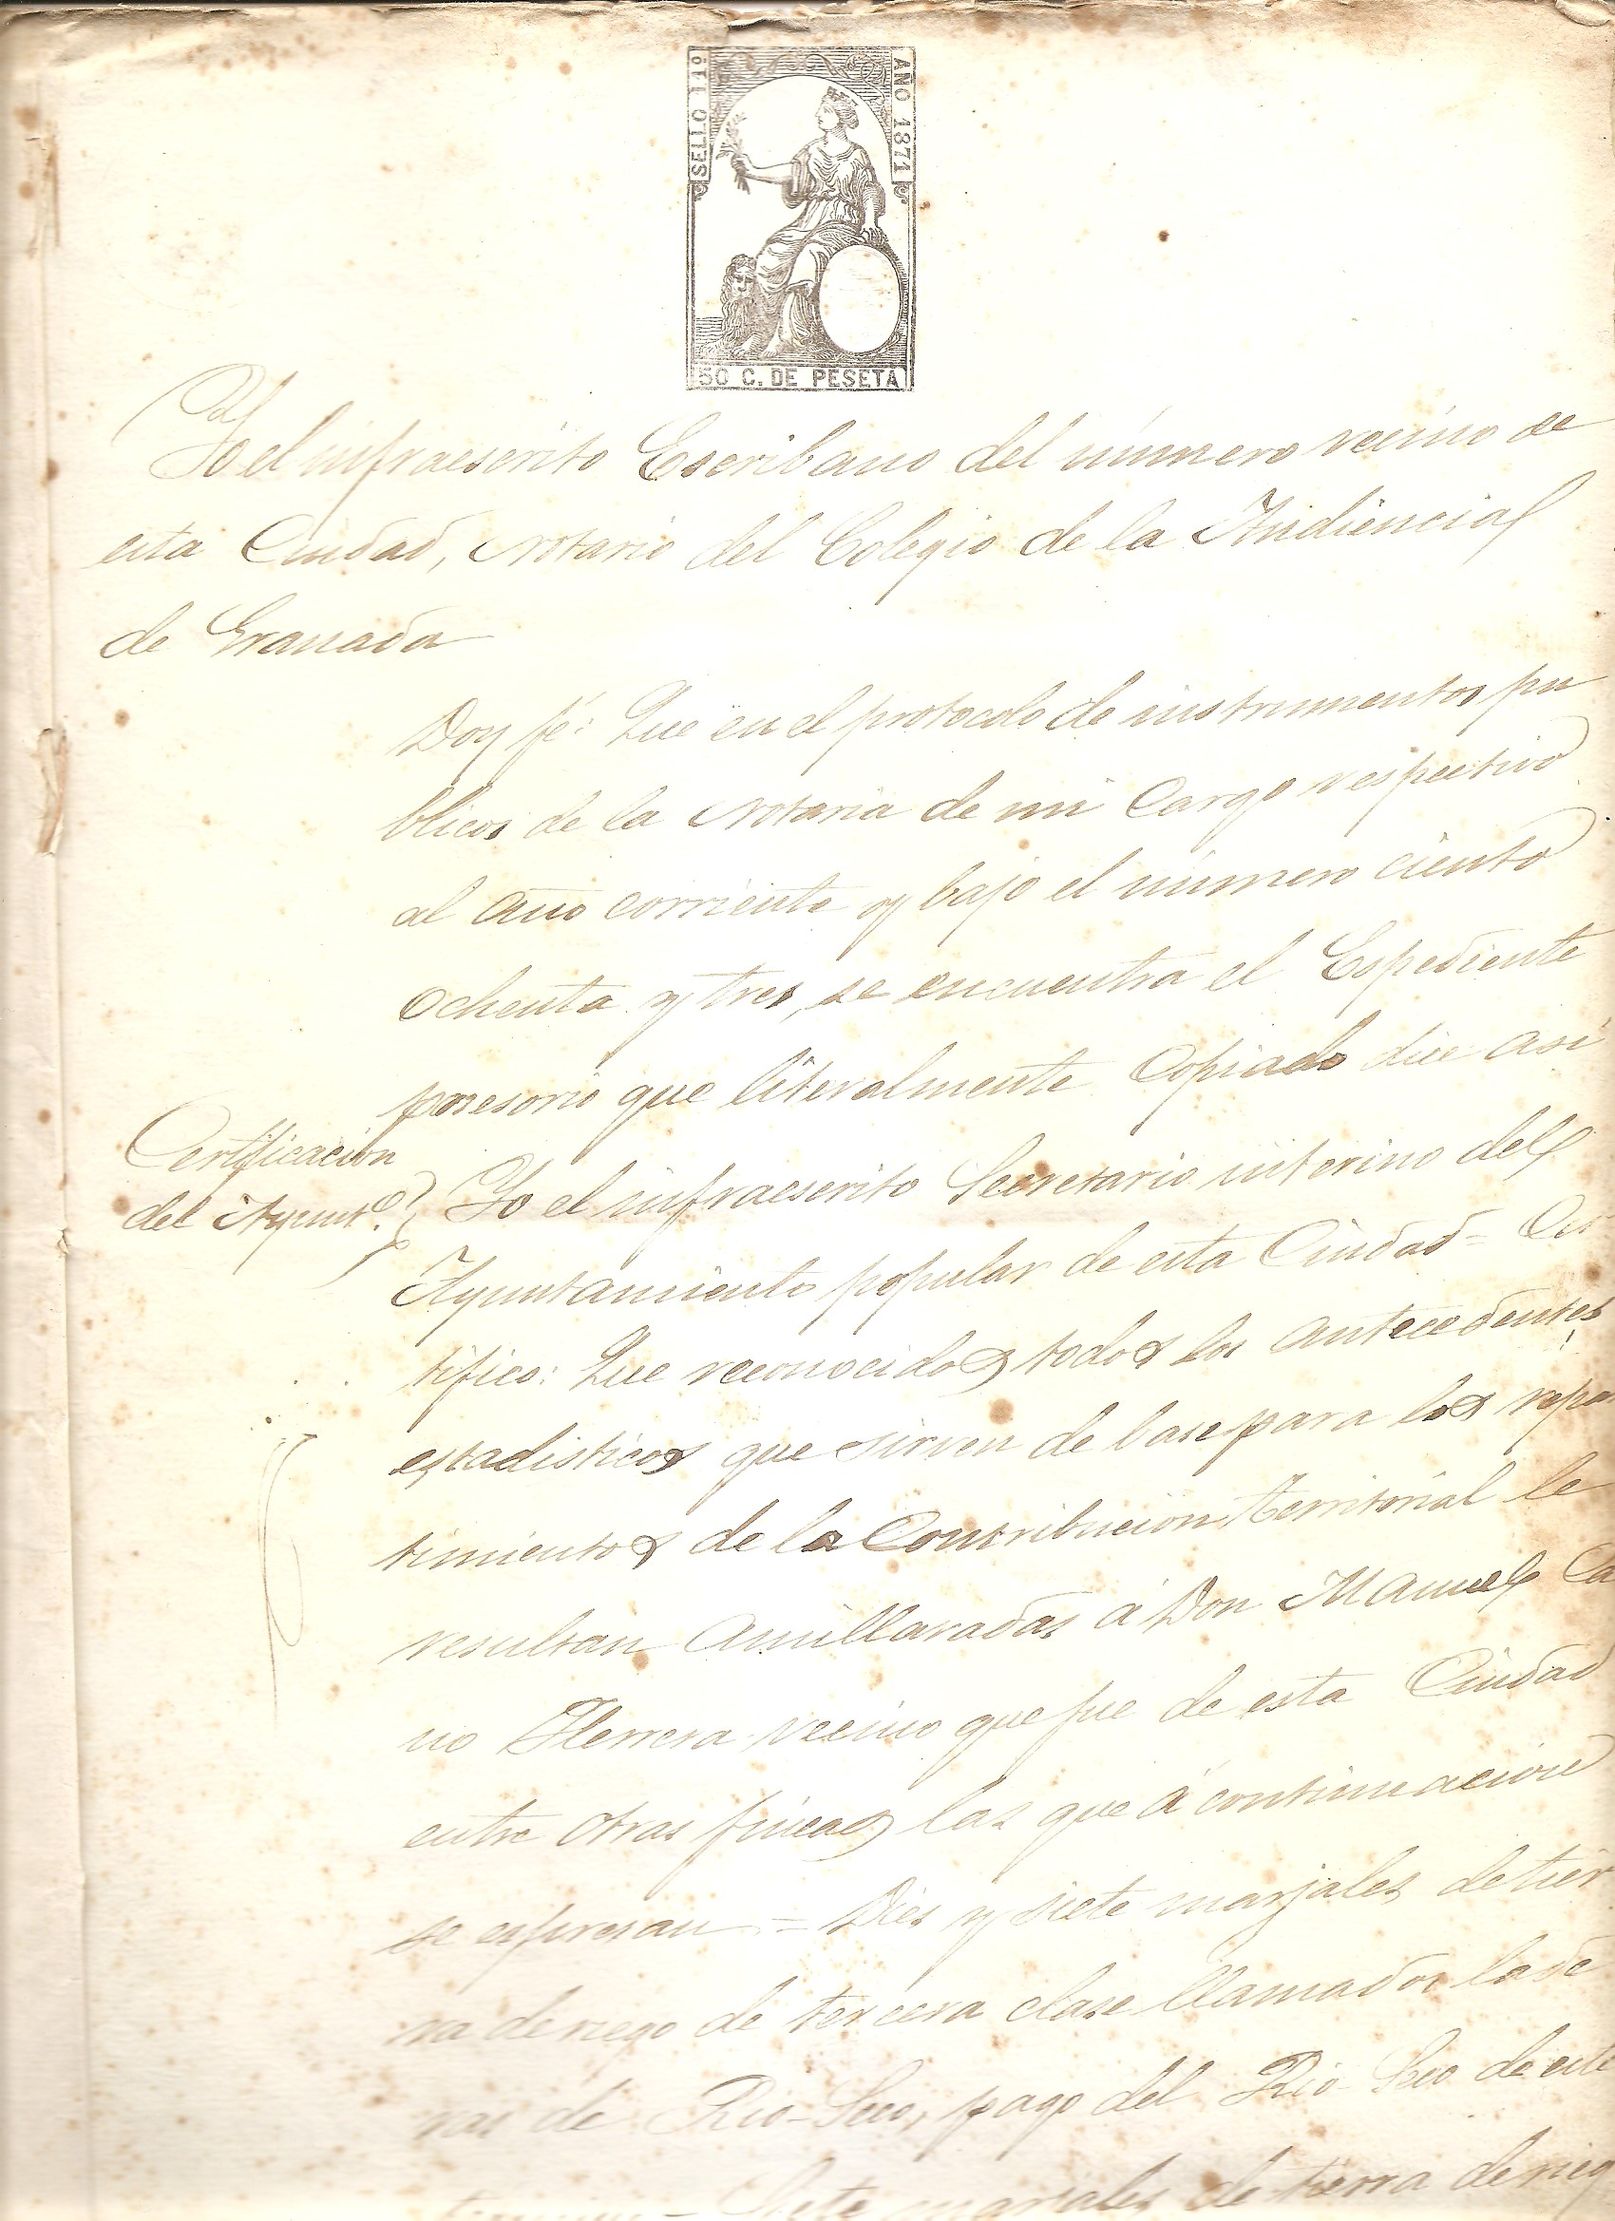 SELLO 11º
AÑO 1871
50 C. DE PESETA
Yo el infraescrito Escribano del número vecino de
esta Ciudad, Notario del Colegio de la Audiencia
de Granada
Doy fé: Que en el protocolo de instrumentos pu
blicos de la Notaria de mi cargo respectivo
al año corriente y bajo el número ciento
ochenta y tres, se encuentra el Espediente
posesorio que literalmente copiado dice asi
Certificacion
del Ayuntº.
Yo el infraescrito Secretario interino del
Ayuntamiento popular de esta Ciudad = Cer
tifico: Que reconocidos todos los antecedentes
estadisticos que sirven de base para los repar
timientos de la Contribucion territorial le
resultan amillaradas á Don Manuel Ca
no Herrera vecino que fue de esta Ciudad
entre otras fincas las que á continuacion
se espresan = Dies y siete marjales de tier
ra de riego de tercera clase llamados lade
ras de Rio-Seco, pago del Rio-Seco de este
termino = Siete marjales de tierra de rieg